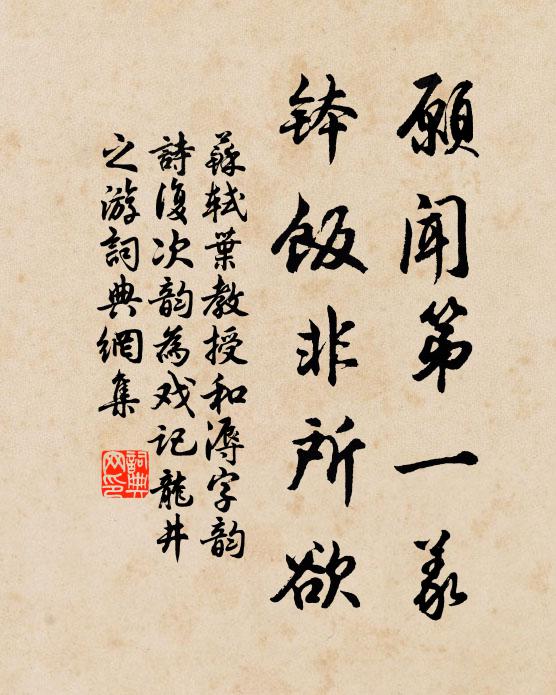 願聞第一義
鉢飯非所欲
蘇軾葉教授和溽字韵
詩復次韵為戏記龍井
之游詞典網集
詞典
网印